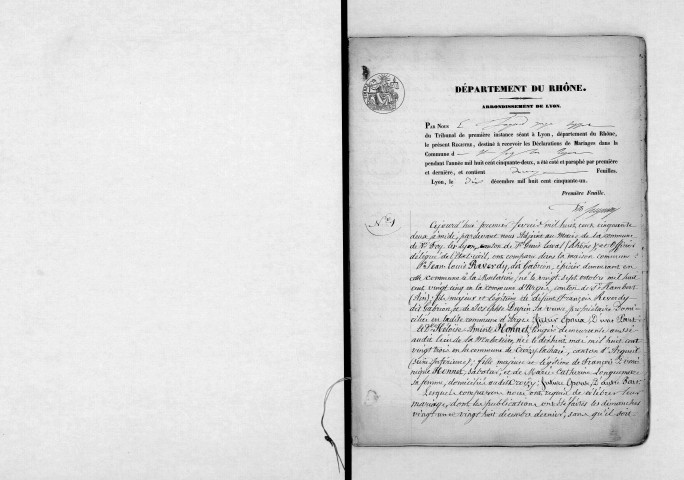 DÉPARTEMENT DU RHÔNE.
ARRONDISSEMENT DE LYON.
PAR NOUS
du Tribunal de première instance séant à Lyon, département du Rhône,
le présent REGISTRE, destiné à recevoir les Déclarations de Mariages dans la
Commune d
pendant l'année mil huit cent cinquante-deux, a été coté et paraphé par première
et dernière, et contient Feuilles.
Lyon, le dix décembre mil huit cent cinquante-un.
Première Feuille.
N° 1
Cejourd'hui premier janvier mil huit cent cinquante
deux à midi, pardevant nous Adjoint au Maire de la commune
de Ste Foy les Lyon, canton de St Genis Laval (Rhône) et officier
délégué de l'état civil, ont comparu dans la maison commune:
Sr Jean Louis Reverdy, dit Gabrion, épicier demeurant en
cette commune à la Mulatière, né le vingt sept octobre mil huit
cent vingt cinq en la commune d'Argis, canton de St Rambert
(Ain); fils majeur et légitime de défunt François Reverdy
dit Gabrion, et de Josephte Dupin sa veuve propriétaire domi-
ciliée en ladite commune d'Argis; futur époux, d'une part
et Dlle Héloïse Aminte Monnet, lingère demeurante aussi
audit lieu de la Mulatière, née le dix huit mai mil huit cent
vingt trois en la commune de Croizy-la-haie, canton d'Argueil
(Seine Inférieure); fille majeure et légitime de François Domi-
nique Monnet, sabotier, et de Marie Catherine Longuemare
sa femme, domiciliés audit Croizy; future épouse, d'autre part.
Lesquels comparans nous ont requis de célébrer leur
mariage, dont les publications ont été faites les dimanches
vingt un et vingt huit décembre dernier, sans qu'il soit